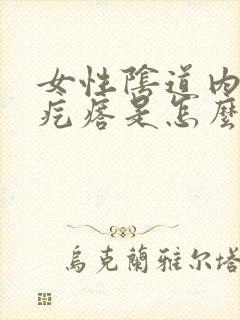 女性陰道内
疙瘩是怎麼
烏克蘭雅尔塔